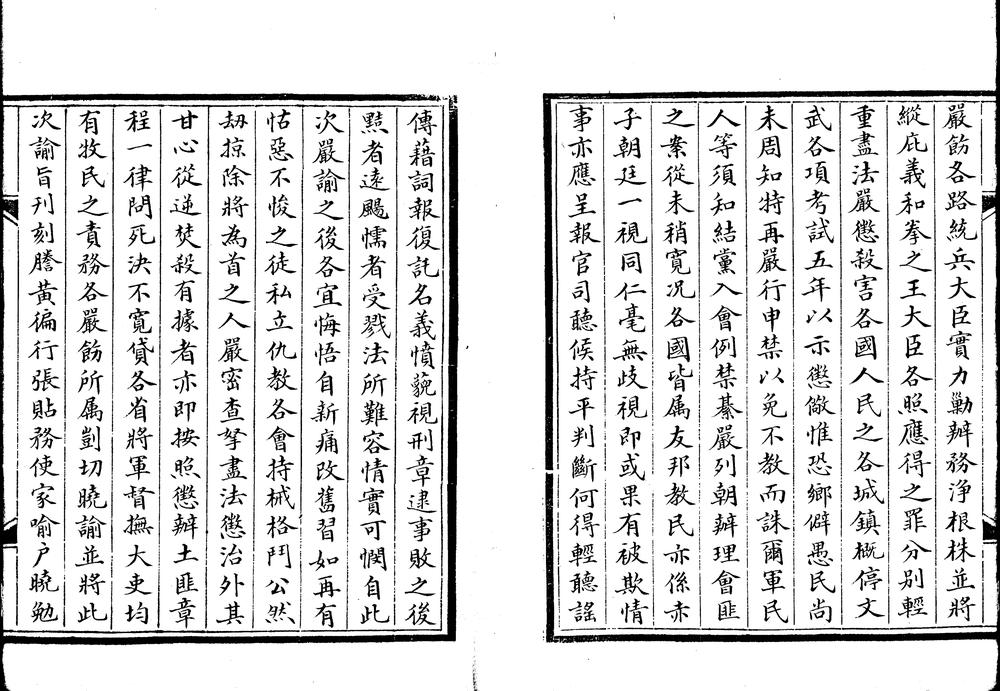 嚴飭各路統兵大臣實力勦辦務淨根株並將
縱庇義和拳之王大臣各照應得之罪分別輕
重盡法嚴懲殺害各國人民之各城鎮概停文
武各項考試五年以示懲儆惟恐鄉僻愚民尚
未周知特再嚴行申禁以免不教而誅爾軍民
人等須知結黨入會例禁綦嚴列朝辦理會匪
之案從未稍寬况各國皆属友邦教民亦係赤
子朝廷一視同仁毫無歧視即或果有被欺情
事亦應呈報官司聽候持平判斷何得輕聽謠
傳藉詞報復託名義憤藐視刑章逮事敗之後
黠者遠颺懦者受戮法所難容情實可憫自此
次嚴諭之後各宜悔悟自新痛改舊習如再有
怙惡不悛之徒私立仇教各會持械格鬥公然
刼掠除將為首之人嚴密查拏盡法懲治外其
甘心從逆焚殺有據者亦即按照懲辦土匪章
程一律問死決不寬貸各省將軍督撫大吏均
有牧民之責務各嚴飭所属剴切曉諭並將此
次諭旨刊刻謄黃徧行張貼務使家喻户曉勉